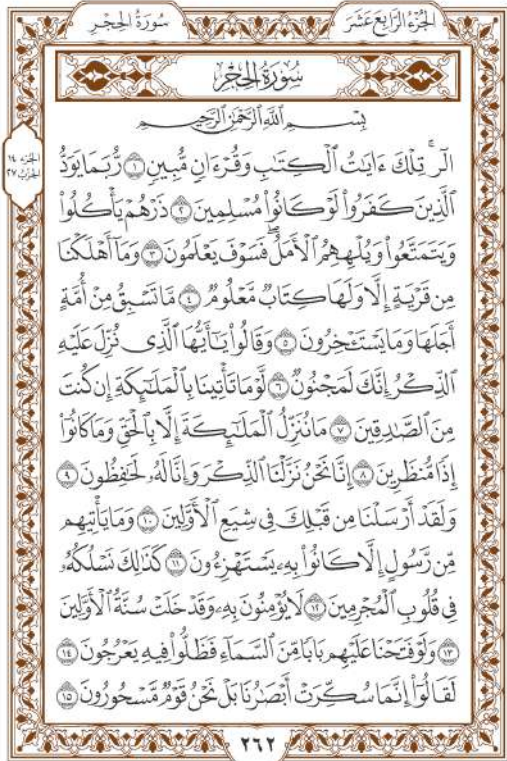 سُورَةُ الحِجْرِ
الجُزْءُ الرَّابِعَ عَشَرَ
سُورَةُ الحِجْرِ
بِسْمِ ٱللَّهِ ٱلرَّحْمَٰنِ ٱلرَّحِيمِ
الجزء ١٤
الحزب ٢٧
الٓرۚ تِلْكَ ءَايَٰتُ ٱلْكِتَٰبِ وَقُرْءَانٖ مُّبِينٖ ١ رُّبَمَا يَوَدُّ
ٱلَّذِينَ كَفَرُواْ لَوْ كَانُواْ مُسْلِمِينَ ٢ ذَرْهُمْ يَأْكُلُواْ
وَيَتَمَتَّعُواْ وَيُلْهِهِمُ ٱلْأَمَلُۖ فَسَوْفَ يَعْلَمُونَ ٣ وَمَآ أَهْلَكْنَا
مِن قَرْيَةٍ إِلَّا وَلَهَا كِتَابٞ مَّعْلُومٞ ٤ مَّا تَسْبِقُ مِنْ أُمَّةٍ
أَجَلَهَا وَمَا يَسْتَـْٔخِرُونَ ٥ وَقَالُواْ يَٰٓأَيُّهَا ٱلَّذِي نُزِّلَ عَلَيْهِ
ٱلذِّكْرُ إِنَّكَ لَمَجْنُونٞ ٦ لَّوْ مَا تَأْتِينَا بِٱلْمَلَٰٓئِكَةِ إِن كُنتَ
مِنَ ٱلصَّٰدِقِينَ ٧ مَا نُنَزِّلُ ٱلْمَلَٰٓئِكَةَ إِلَّا بِٱلْحَقِّ وَمَا كَانُوٓاْ
إِذٗا مُّنظَرِينَ ٨ إِنَّا نَحْنُ نَزَّلْنَا ٱلذِّكْرَ وَإِنَّا لَهُۥ لَحَٰفِظُونَ ٩
وَلَقَدْ أَرْسَلْنَا مِن قَبْلِكَ فِي شِيَعِ ٱلْأَوَّلِينَ ١٠ وَمَا يَأْتِيهِم
مِّن رَّسُولٍ إِلَّا كَانُواْ بِهِۦ يَسْتَهْزِءُونَ ١١ كَذَٰلِكَ نَسْلُكُهُۥ
فِي قُلُوبِ ٱلْمُجْرِمِينَ ١٢ لَا يُؤْمِنُونَ بِهِۦ وَقَدْ خَلَتْ سُنَّةُ ٱلْأَوَّلِينَ
١٣ وَلَوْ فَتَحْنَا عَلَيْهِم بَابٗا مِّنَ ٱلسَّمَآءِ فَظَلُّواْ فِيهِ يَعْرُجُونَ ١٤
لَقَالُوٓاْ إِنَّمَا سُكِّرَتْ أَبْصَٰرُنَا بَلْ نَحْنُ قَوْمٞ مَّسْحُورُونَ ١٥
٢٦٢